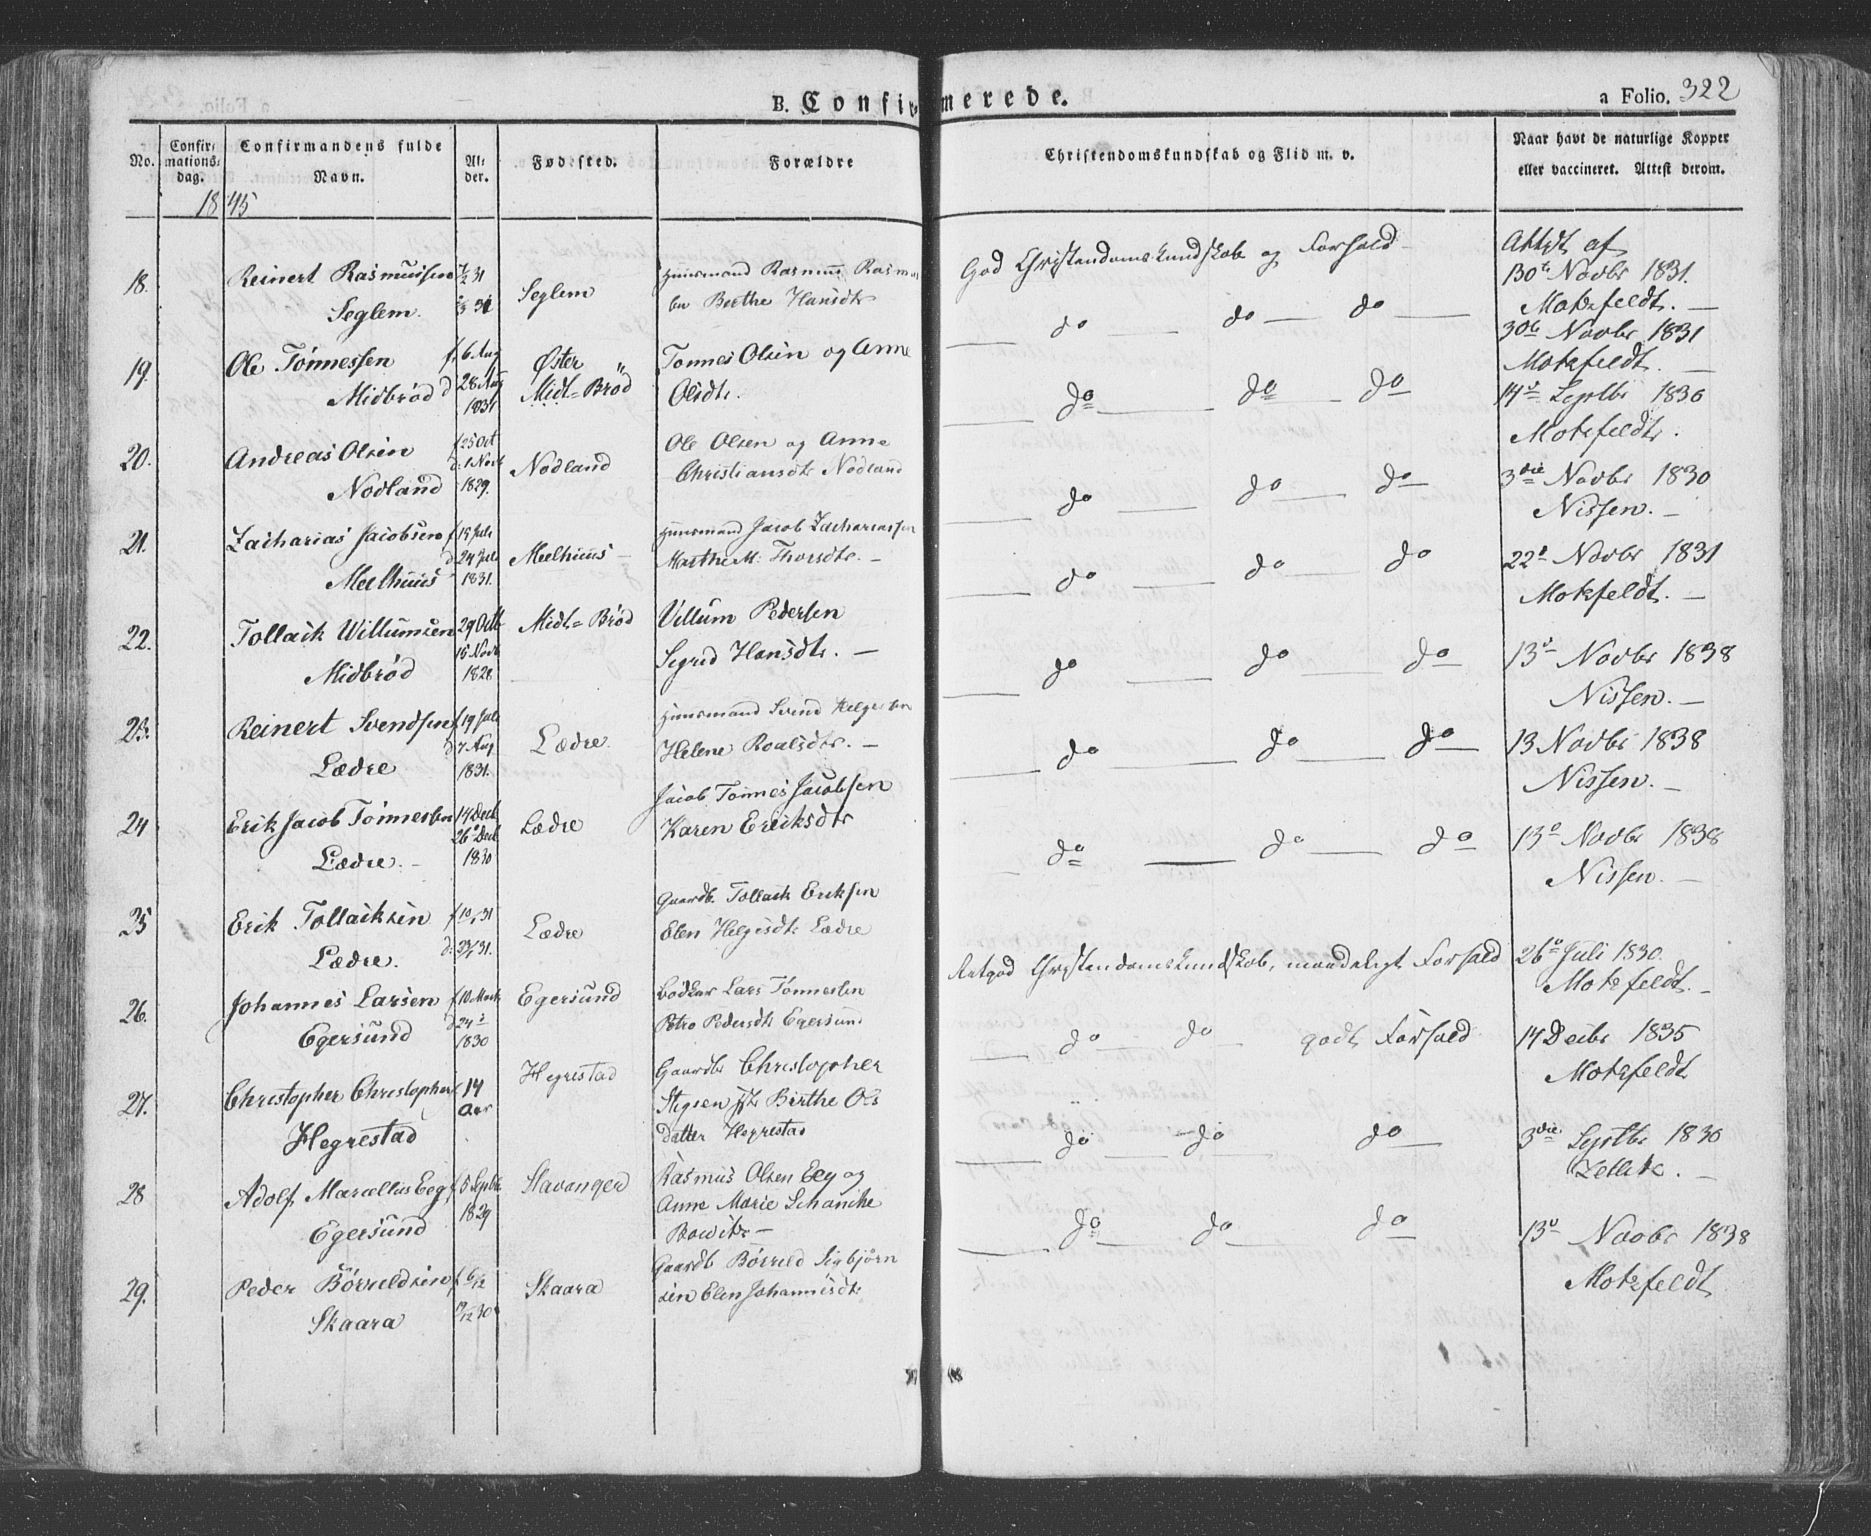 B. Confirmerede.
a Folio. 322
No.
Confirmationsdag.
Confirmandens fulde Navn.
Alder.
Fødested.
Forældre
Christendomskundskab og Flid m. v.
Naar havt de naturlige Kopper eller vaccineret. Attest derom.
1845
18. Reinert Rasmussen Seglem. 31 Seglem Huusmand Rasmus Rasmussen Birthe Hansdtr God Christendomskundskab og Forhold Attest af 30te Novbr 1831. Motzfeldt. —
19. Ole Tönnessen Midbrød f. 6 Aug d 28 Aug 1831 Øster Midt=Bröd Tonnes Olsen og Anne Olsdtr. do do do 30te Novbr 1831 Motzfeldt. —
20. Andreas Olsen Nodland f 25 Oct d: 1 Novb 1829. Nodland Ole Olsen og Anna Christiansdtr Nodland do do do 14de Septbr 1836 Motzfeldt.
21. Zacharias Jacobsen Meelhuus f 15 Juli d 24 Juli 1831. Meelhuus — Huusmand Jacob Zachariassen Marthe M: Thorsdtr. — do do do 3die Novbr 1830 Nissen. —
22. Tollack Willumsen Midbrød 29 Octb 15 Novb 1828 Midt=Bröd Villum Pedersen Segrid Hansdtr. — do do do 22de Novbr 1831 Motzfeldt. —
23. Reinert Svendsen Lædre f 19 Juli d 7 Aug 1831. Lædre. Huusmand Svend Helgesen Helene Roalsdtr. — do do do 13de Novbr 1838 Nissen. —
24 Erik Jacob Tönnessen Lædre. — 14 Decb 26de Decb 1830 Lædre Jacob Tönnes Jacobsen Karen Eriksdtr do do do 13 Novbr 1838 Nissen. —
25 Erik Tollacksen Lædre. Lædre Gaardb. Tollack Eriksen Elen Helgesdtr Lædre do do do 13de Novbr 1838 Nissen. —
26. Johannes Larsen Egersund 1830 Egersund Bödker Lars Tönnessen Petro Pedersdtr Egersund Retgod Christendomskundskab, maadeligt Forhold 26de Juli 1830. Motzfeldt. —
27. Christopher Christopher Hegrestad 14 Aar Hegrestad Gaardbr Christopher Stigsen Birthe Ols datter Hegrestad do do godt Forhold 14 Decbr 1835 Motzfeldt
28 Adolf Marcellus Eeg, Egersund f 5 Septbr 1829 Stavanger Rasmus Olsen Eeg og Anne Marie Schanche do do do 3die Septbr 1830
29. Peder Börrildsen Skaara f 6/12 Skaara Gaardb Börrild Sigbjörn sen Elen Johannesdtr do do do 13de Novbr 1838 Motzfeldt